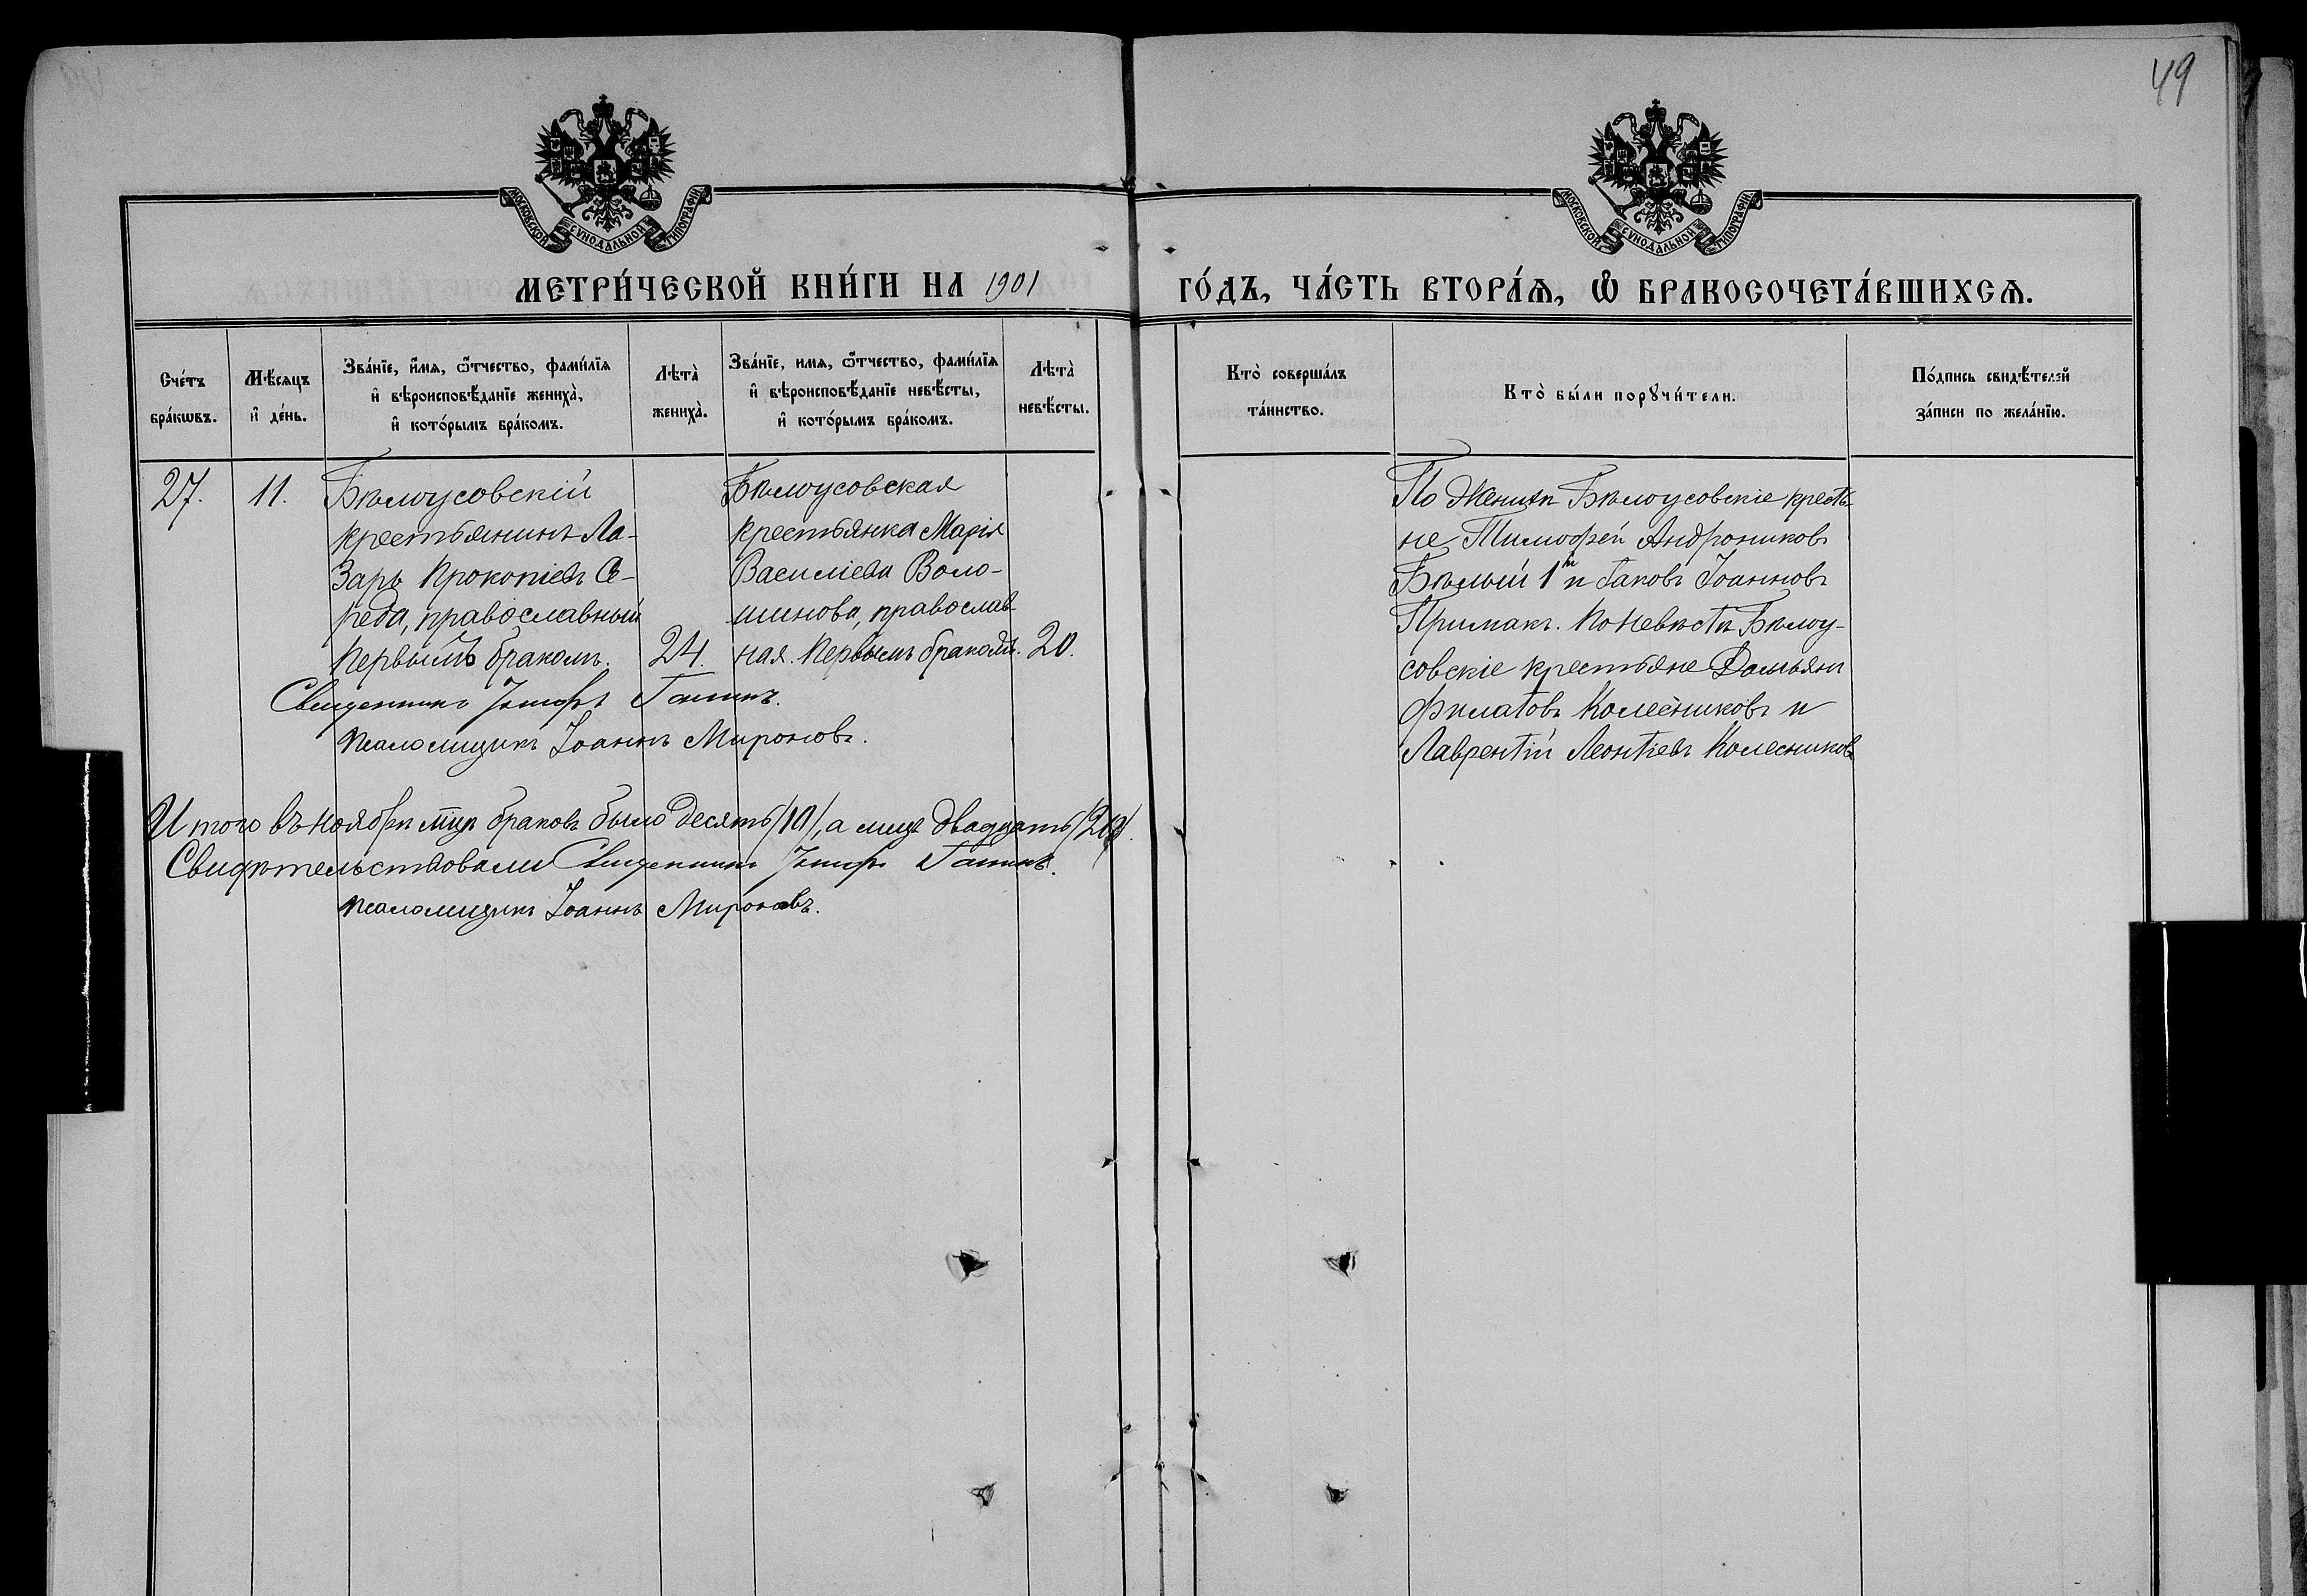 49
МОСКОВСКОЙ СѴНОДАЛЬНОЙ ТИПОГРАФІИ.
МОСКОВСКОЙ СѴНОДАЛЬНОЙ ТИПОГРАФІИ.
МЕТРИ́ЧЕСКОЙ КНИ́ГИ НА 1901
ГО́ДЪ, ЧА́СТЬ ВТОРА́Ѧ, Ѽ БРАКОСОЧЕТА́ВШИХСѦ.
Сче́тъ
бра́кѡвъ.
Мѣ́сяцъ
и҆ де́нь.
Зва́нїе, и҆́мѧ, ѻ҆́тчество, фами́лїѧ
и҆ вѣроисповѣ́данїе жениха̀,
и҆ кото́рымъ бра́комъ.
Лѣта̀
жениха̀.
Зва́нїе, имѧ, ѻ҆́тчество, фами́лїѧ
и҆ вѣроисповѣ́данїе невѣ́сты,
и҆ кото́рымъ бра́комъ.
Лѣта̀
невѣ́сты.
Кто̀ соверша́лъ
та́инство.
Кто̀ бы́ли порꙋчи́тели.
По́дпись свидѣ́телей
за́писи по жела́нїю.
27.
11.
Бѣлоусовскій
крестьянинъ Ла-
зарь Прокопіевъ Се-
реда, православный
первымъ бракомъ.
24.
Бѣлоусовская
крестьянка Марія
Васильева Воло-
шинова, православ-
ная. первымъ бракомъ.
20.
Священникъ Гашинъ.
псаломщикъ Іоаннъ Мироновъ.
По женихѣ Бѣлоусовскіе крестья-
не Тимофей Андрониковъ
Бѣлый 1й и Іаковъ Іоанновъ
Примакъ. По невѣстѣ Бѣлоу-
совскіе крестьяне Дамьянъ
Филатовъ Колесниковъ и
Лаврентій Леонтіевъ Колесниковъ
Итого въ ноябрѣ мцѣ браковъ было десять /10/, а лицъ двадцать /20/.
Свидѣтельствовали Священникъ Гашинъ.
псаломщикъ Іоаннъ Мироновъ.